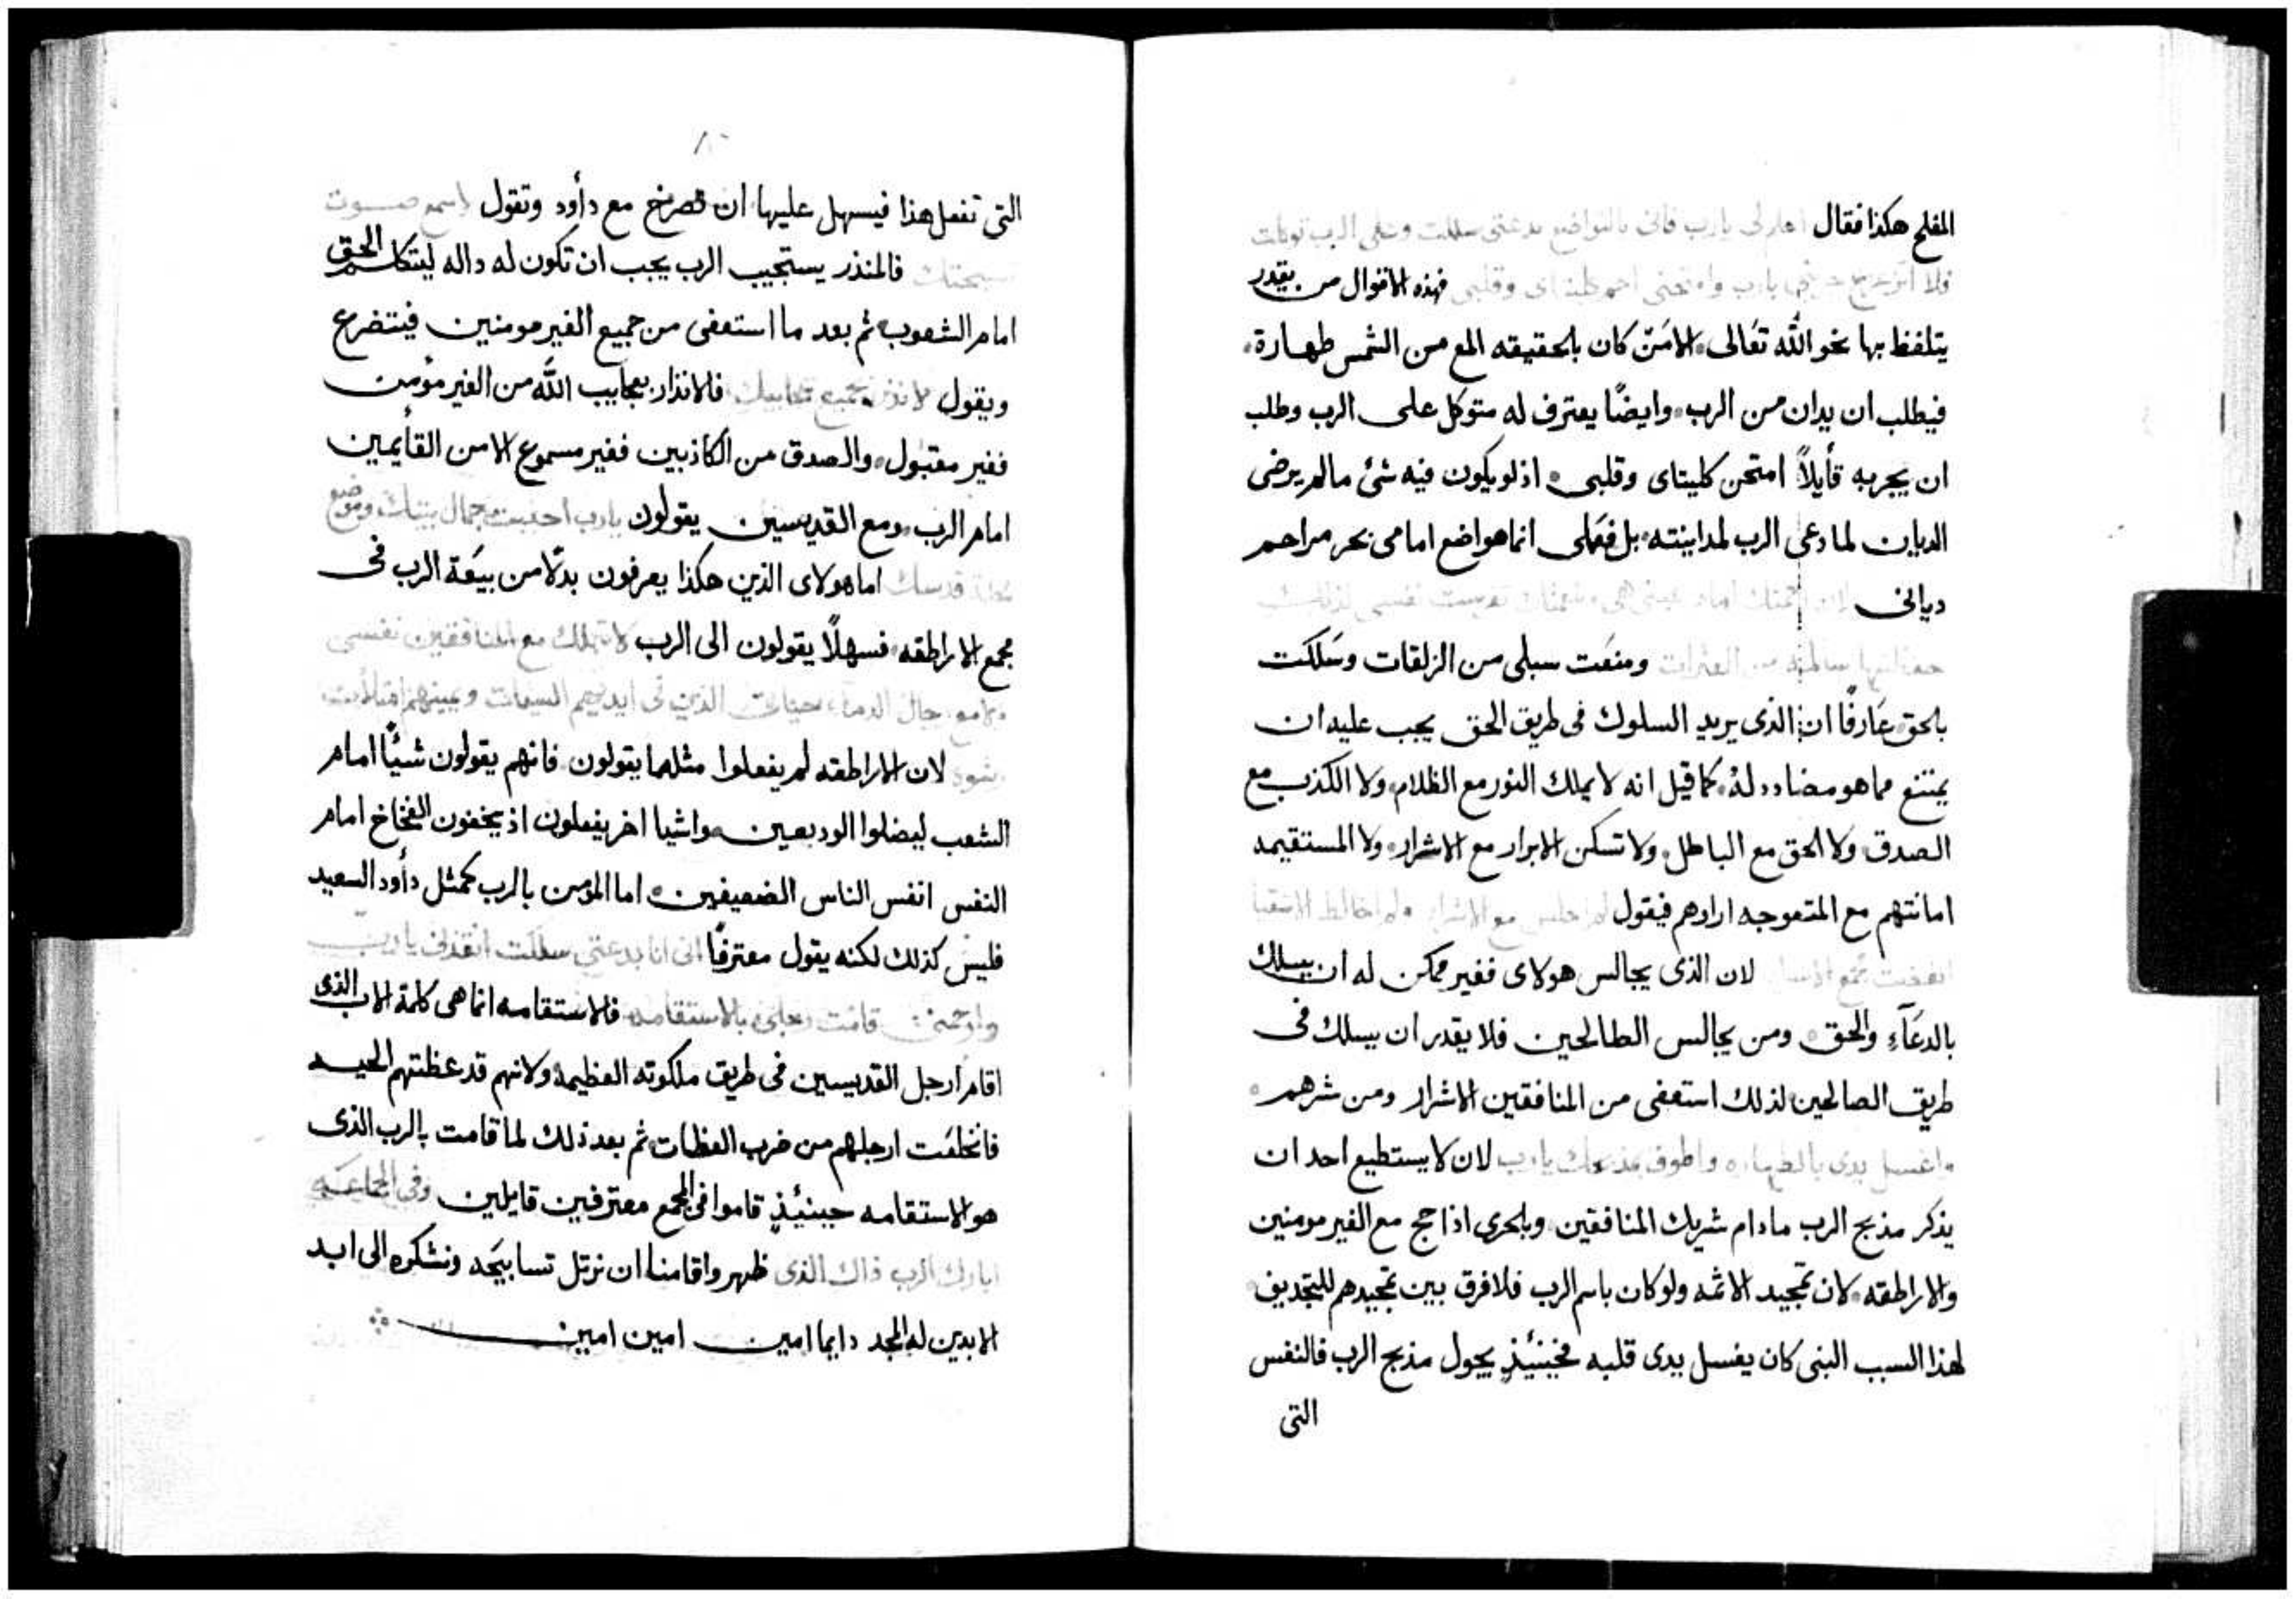 المفلح هكذا فقال احكم لى يارب فانى بالتواضع بدعتى سلكت وعلى الرب توكلت
فلا اتزعزع جربنى يارب وامتحنى احم كليتاى وقلبى فهذه الاقوال من يقدر
يتلفظ بها نحو الله تعالى الا من كان بالحقيقه المع من الشمس طهارة
فيطلب ان يدان من الرب وايضًا يعترف له متوكل على الرب وطلب
ان يجربه قأيلاً امتحن كليتاى وقلبى اذ لو يكون فيه شئ مالم يرضى
الديان لما دعى الرب لمداينته بل فعلى انما هو اضع امامى بحر مراحم
ديانى لان رحمتك امام عينى هى
من العثرات ومنعت سبلى من الزلقات وسلكت
بالحق عارفًا ان الذى يريد السلوك فى طريق الحق يجب عليه ان
يمتنع مما هو مضادد له كما قيل انه لا يملك النور مع الظلام ولا الكذب مع
الصدق ولا الحق مع الباطل ولا تسكن الابرار مع الاشرار ولا المستقيمه
امانتهم مع المتعوجه ارادهم فيقول لم اجلس مع الاشرار ولم اخالط الاشقيا
ابغضت مجمع لان الذى يجالس هولاى فغير ممكن له ان يسلك
بالدعآء والحق ومن يجالس الطالحين فلا يقدر ان يسلك فى
طريق الصالحين لذلك استعفى من المنافقين الاشرار ومن شرهم
واغسل يدى بالطهاره واطوف بمذبحك يارب لان لا يستطيع احد ان
يذكر مذبح الرب مادام شريك المنافقين وبالحرى اذا حج مع الغير مومنين
والاراطقه لان تمجيد الاثمه ولو كان باسم الرب فلا فرق بين تمجيدهم للتجديف
لهذا السبب النبى كان يغسل يدى قلبه فحينئذٍ يجول مذبح الرب فالنفس
التى
٨٠
التى تفعل هذا فيسهل عليها ان تصرخ مع دأود وتقول لاسمع صوت
تسبحتك فالمنذر يستجيب الرب يجب ان تكون له داله ليتكلم الحق
امام الشعوب ثم بعد ما استعفى من جميع الغير مومنين فيتضرع
ويقول لانذر بجميع عجايبك فالانذار بعجايب الله من الغير مؤمن
فغير مقبول والصدق من الكاذبين فغير مسموع الا من القأيمين
امام الرب ومع القديسين يقولون يارب احببت جمال بيتك وموضع
قدسك اما هولاى الذين هكذا يعرفون بدلاً من بيعة الرب فى
مجمع الاراطقه فسهلاً يقولون الى الرب لا تهلك مع المنافقين نفسى
ولا مع رجال الدماء حياتى الذين فى ايديهم السيات ويمينهم امتلأت
رشوه لان الاراطقه لم يفعلوا مثلما يقولون فانهم يقولون شيئًا امام
الشعب ليضلوا الوديعين واشيا اخر يفعلون اذ يخفون الفخاخ امام
النفس انفس الناس الضعيفين اما المؤمن بالرب كمثل دأود السعيد
فليس كذلك لكنه يقول معترفًا انى انا بدعتى سلكت انقذنى يارب
وارحمنى قامت رجلى بالاستقامه فالاستقامه انما هى كلمة الاب الذى
اقام ارجل القديسين فى طريق ملكوته العظيمة ولانهم قد عظتهم الحيه
فانخلعت ارجلهم من ضرب العظات ثم بعد ذلك لما قامت بالرب الذى
هو الاستقامه حينئذٍ قاموا فى المجمع معترفين قايلين وفى الجماعه
ابارك الرب ذاك الذى ظهر واقامنا ان نرتل تسابيحه ونشكره الى ابد
الابدين له المجد دايما امين امين امين